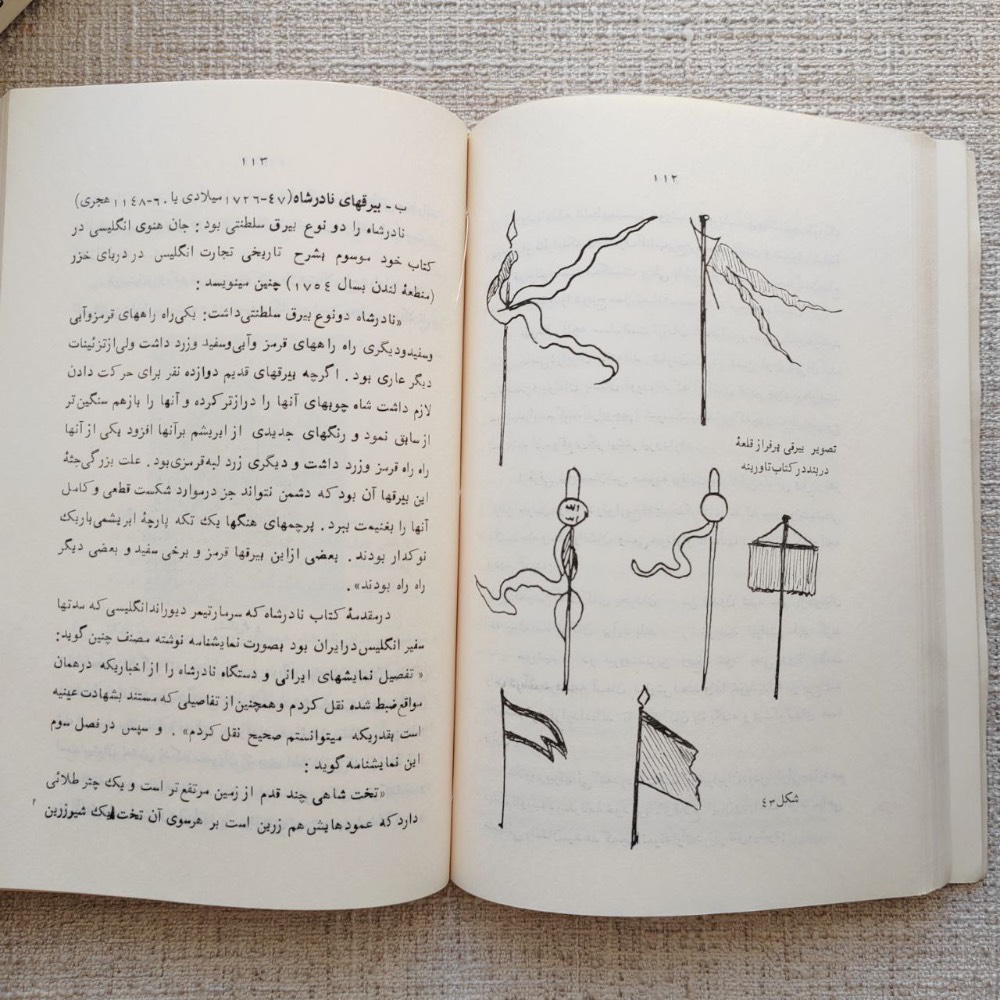 ۱۱۲
تصویر بیرقی برفراز قلعهٔ
دربند در کتاب تاورینه
الله
شکل ۴۳
۱۱۳
ب - بیرقهای نادرشاه (۴۷-۱۷۲۶ میلادی یا ۶۰-۱۱۴۸ هجری)
نادرشاه را دو نوع بیرق سلطنتی بود : جان هنوی انگلیسی در
کتاب خود موسوم بشرح تاریخی تجارت انگلیس در دریای خزر
(منطعهٔ لندن بسال ۱۷۵٤) چنین مینویسد :
«نادرشاه دونوع بیرق سلطنتی داشت: یکی راه راههای قرمز وآبی
وسفید ودیگری راه راههای قرمز وآبی وسفید وزرد داشت ولی از تزئینات
دیگر عاری بود . اگرچه بیرقهای قدیم دوازده نفر برای حرکت دادن
لازم داشت شاه چوبهای آنها را درازتر کرده و آنها را بازهم سنگین‌تر
از سابق نمود و رنگهای جدیدی از ابریشم برآنها افزود یکی از آنها
راه راه قرمز وزرد داشت و دیگری زرد لبه قرمزی بود. علت بزرگی جثهٔ
این بیرقها آن بود که دشمن نتواند جز درموارد شکست قطعی و کامل
آنها را بغنیمت ببرد. پرچمهای هنگها یک تکه پارچهٔ ابریشمی باریک
نوکدار بودند . بعضی از این بیرقها قرمز و برخی سفید و بعضی دیگر
راه راه بودند».
درمقدمهٔ کتاب نادرشاه که سرمارتیمر دیوراند انگلیسی که مدتها
سفیر انگلیس در ایران بود بصورت نمایشنامه نوشته مصنف چنین گوید:
« تفصیل نمایشهای ایرانی و دستگاه نادرشاه را از اخباریکه درهمان
مواقع ضبط شده نقل کردم و همچنین از تفاصیلی که مستند بشهادت عینیه
است بقدریکه میتوانستم صحیح نقل کردم» . و سپس در فصل سوم
این نمایشنامه گوید :
«تخت شاهی چند قدم از زمین مرتفع‌تر است و یک چتر طلائی
دارد که عمودهایش هم زرین است بر هرسوی آن تخت یک شیرزرین